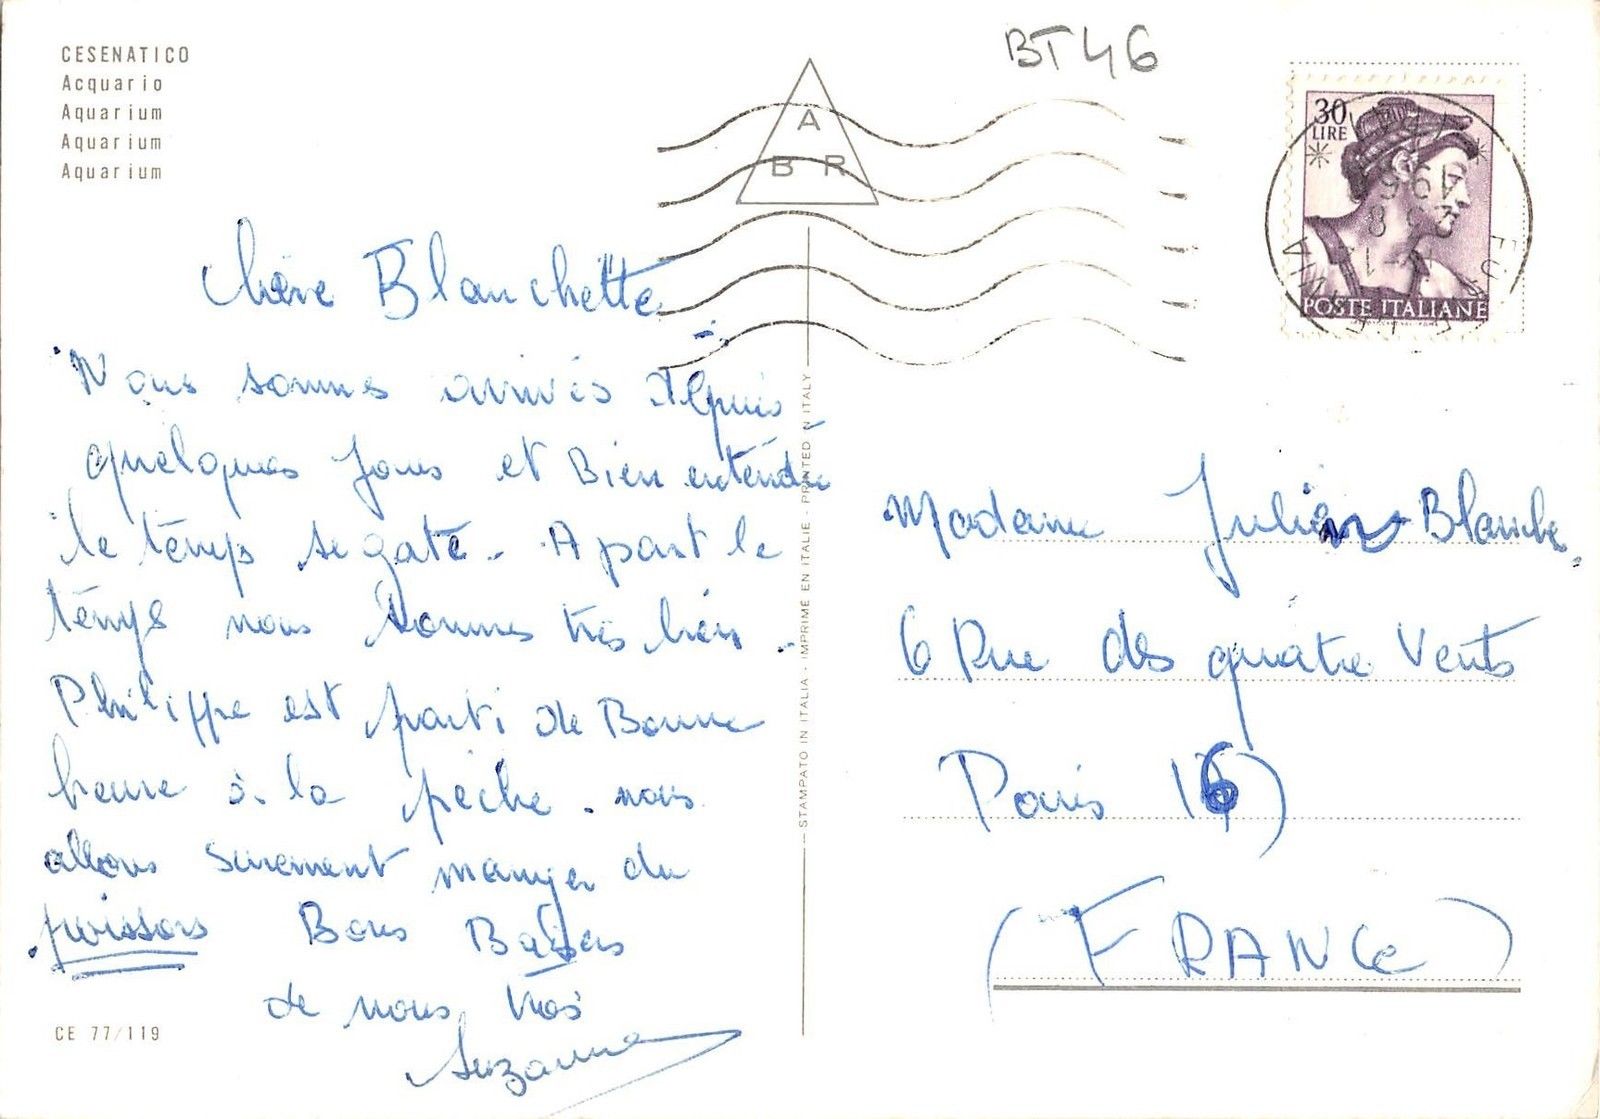 CESENATICO
Acquario
Aquarium
Aquarium
Aquarium
BT46
A
B R
30
LIRE
POSTE ITALIANE
Chère Blanchette
Nous sommes arrivés depuis
quelques jours et Bien entendu
le temps se gate. A part le
temps nous sommes très bien.
Philippe est parti de Bonne
heure à la pèche. nous
allons surement manger du
poissons Bons Baisers
de nous trois
Suzanne
CE 77/119
STAMPATO IN ITALIA - IMPRIMÉ EN ITALIE - PRINTED IN ITALY
Madame Julien Blanche
6 Rue des quatre Vents
Paris (6)
(FRANCE)